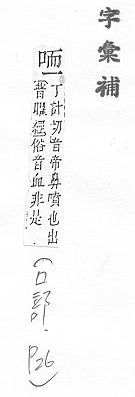 字彙補
丁計切音帝鼻噴也出
普曜經俗音血非是
(口部. P26)